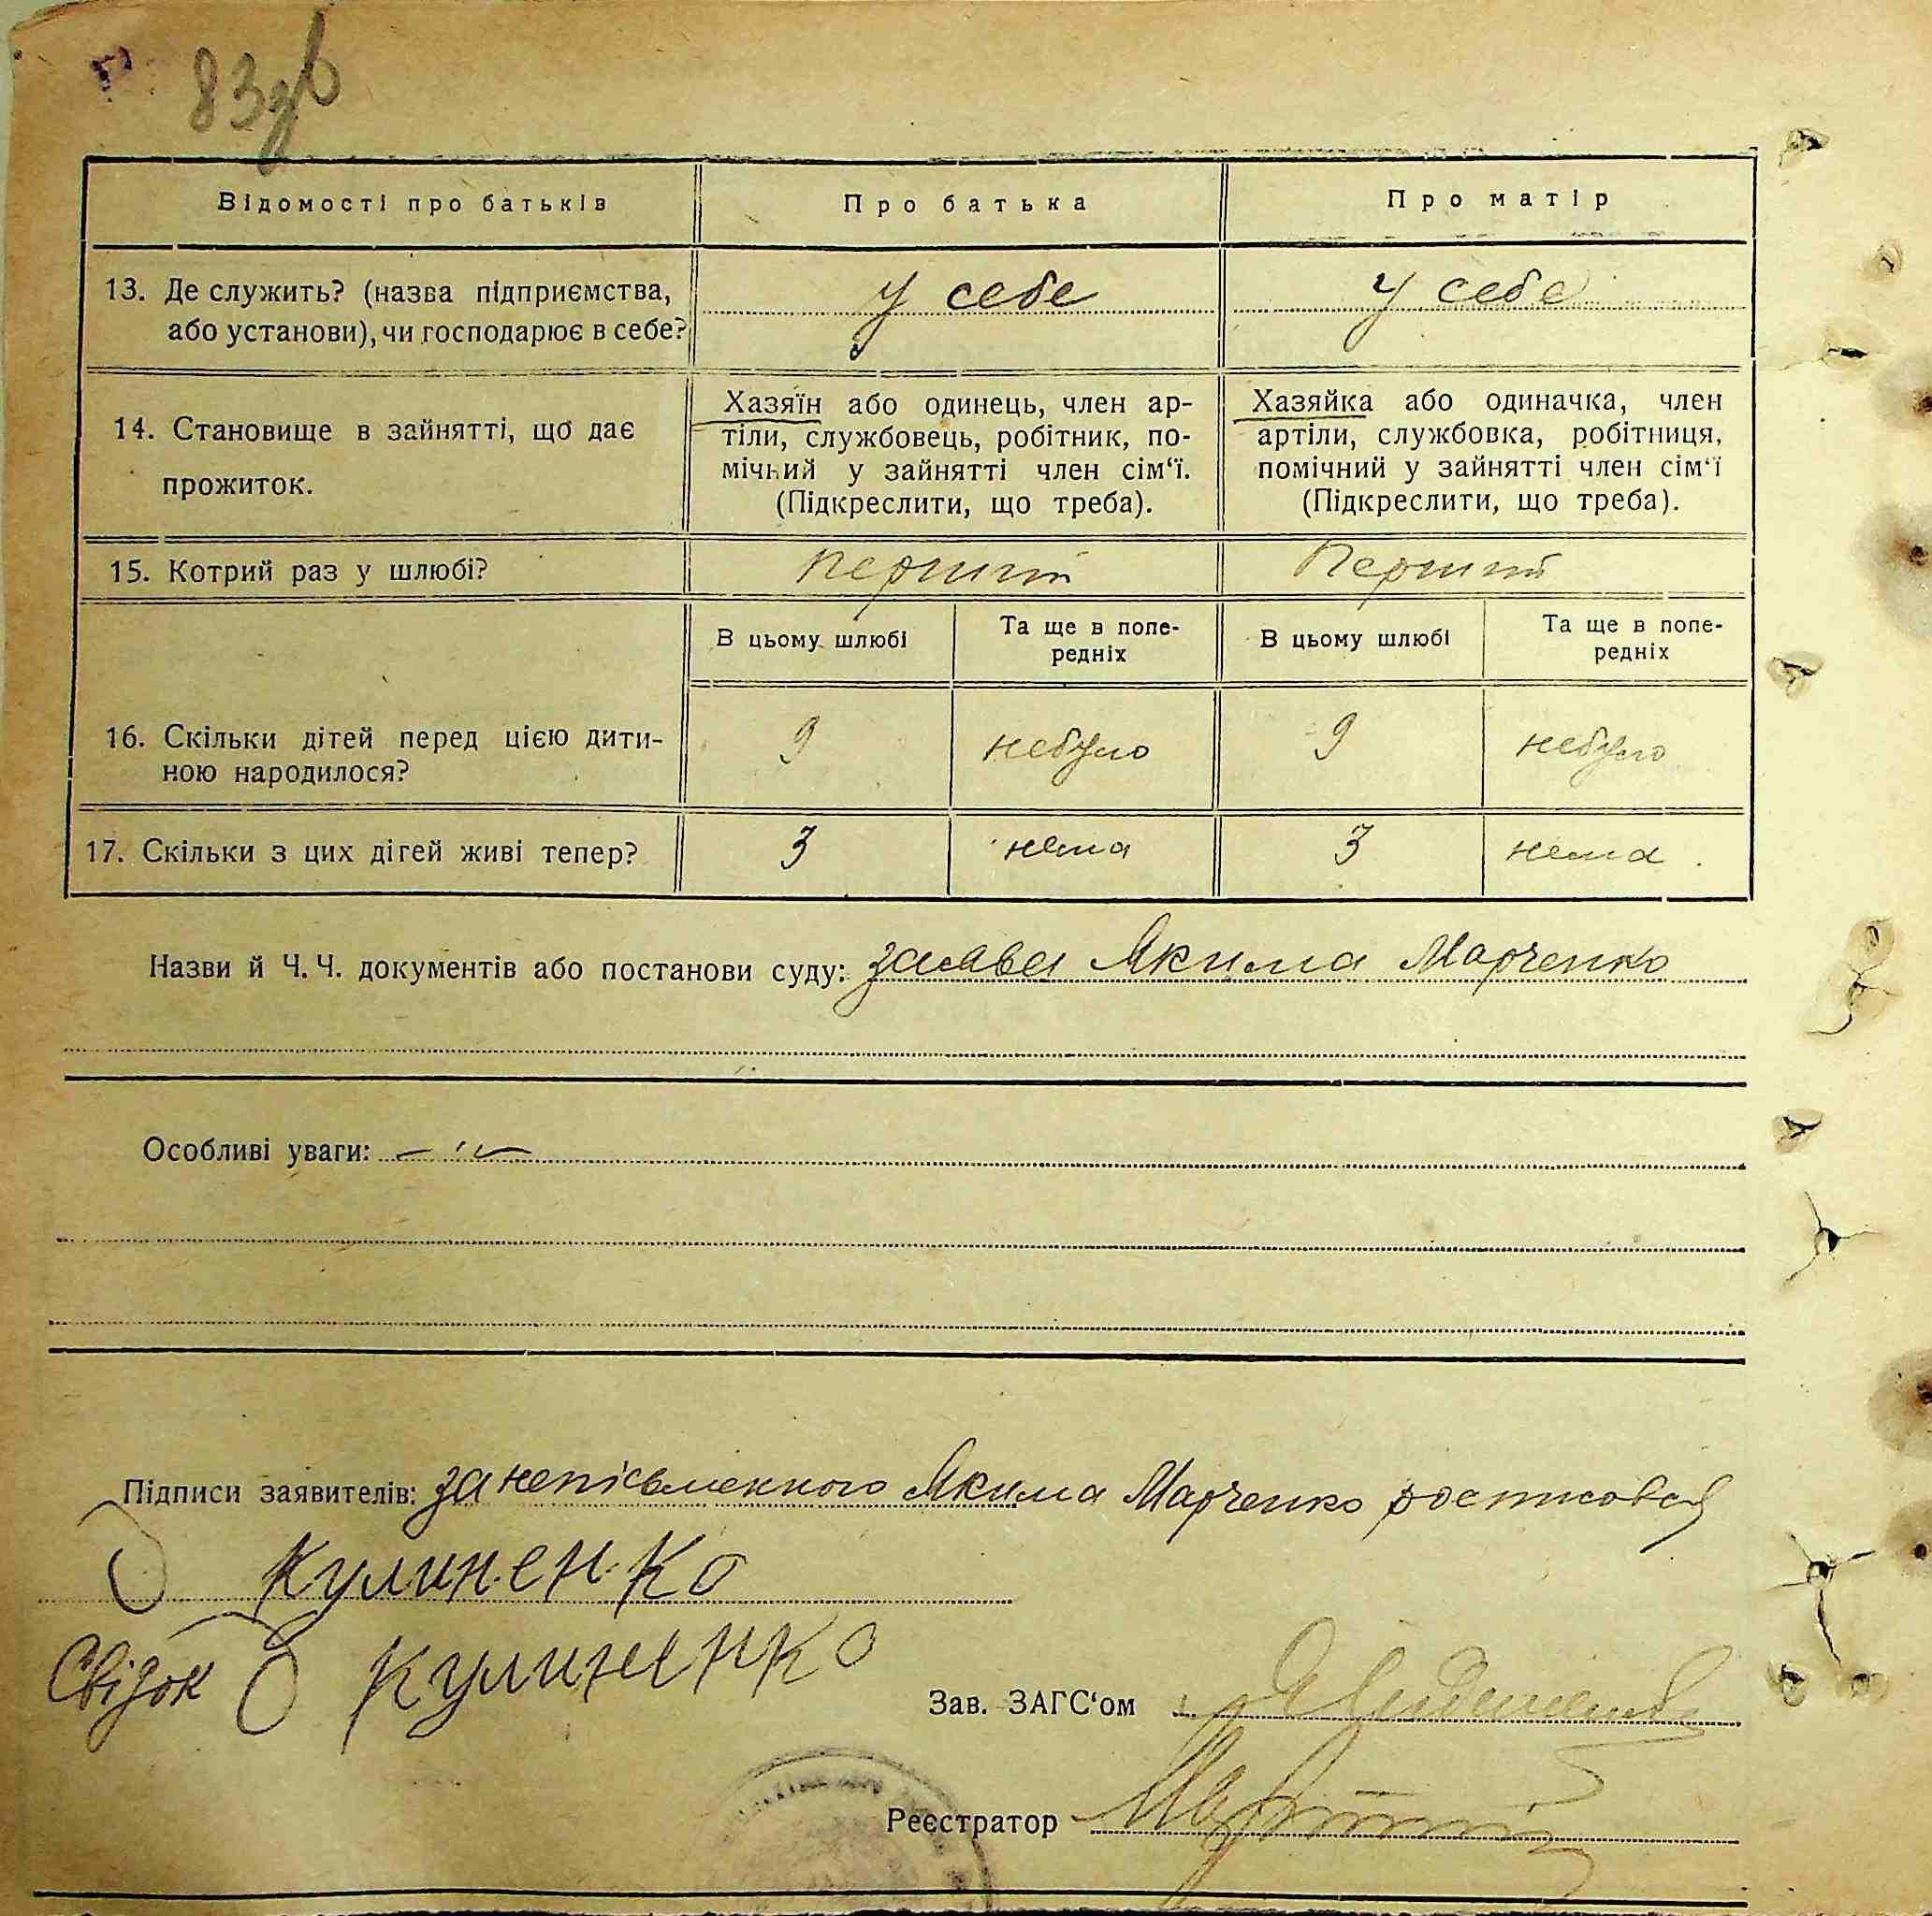 83зв
Відомості про батьків
Про батька
Про матір
13. Де служить? (назва підприємства,
або установи), чи господарює в себе?
у себе
у себе
14. Становище в зайнятті, що дає
прожиток.
Хазяїн або одинець, член ар-
тіли, службовець, робітник, по-
мічний у зайнятті член сім'ї.
(Підкреслити, що треба).
Хазяйка або одиначка, член
артіли, службовка, робітниця,
помічний у зайнятті член сім'ї
(Підкреслити, що треба).
15. Котрий раз у шлюбі?
перший
Перший
В цьому шлюбі
Та ще в попе-
редніх
В цьому шлюбі
Та ще в попе-
редніх
16. Скільки дітей перед цією дити-
ною народилося?
9
небуло
9
небуло
17. Скільки з цих дітей живі тепер?
3
нема
3
нема
Назви й Ч. Ч. документів або постанови суду: заява Якима Марченко
Особливі уваги:
Підписи заявителів: за непісьменного Якима Марченко росписовся
Кулиненко
Свідок Кулиненко
Зав. ЗАГС'ом
Реєстратор